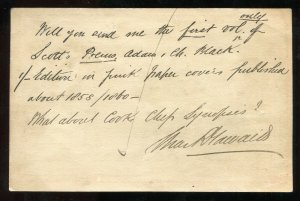 only
Will you send me the first vol. of
Scott's Poems, Adam & Ch. Black
Edition in pink paper covers published
about 1858/1860 —
What about Cook,